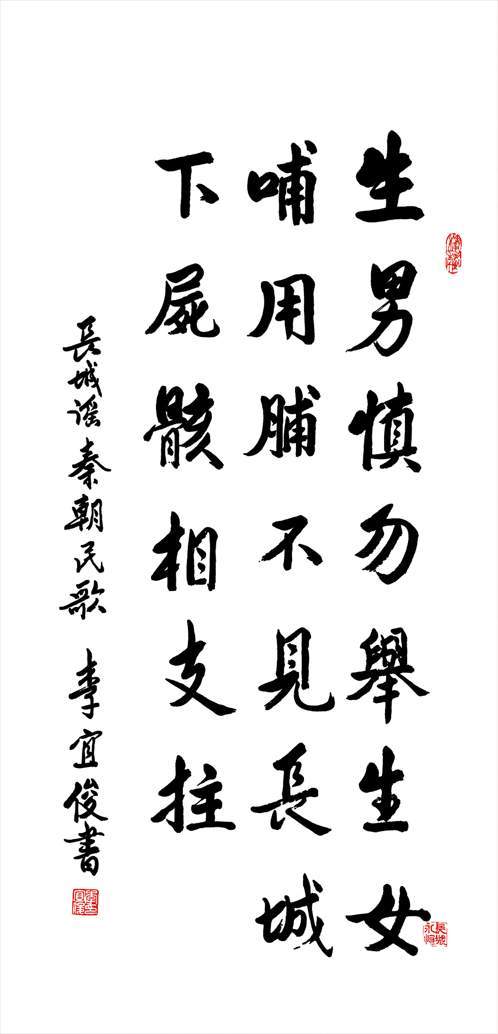 生男慎勿舉生女
哺用脯不見長城
下屍骸相支拄
長城谣秦朝民歌 李宜俊書